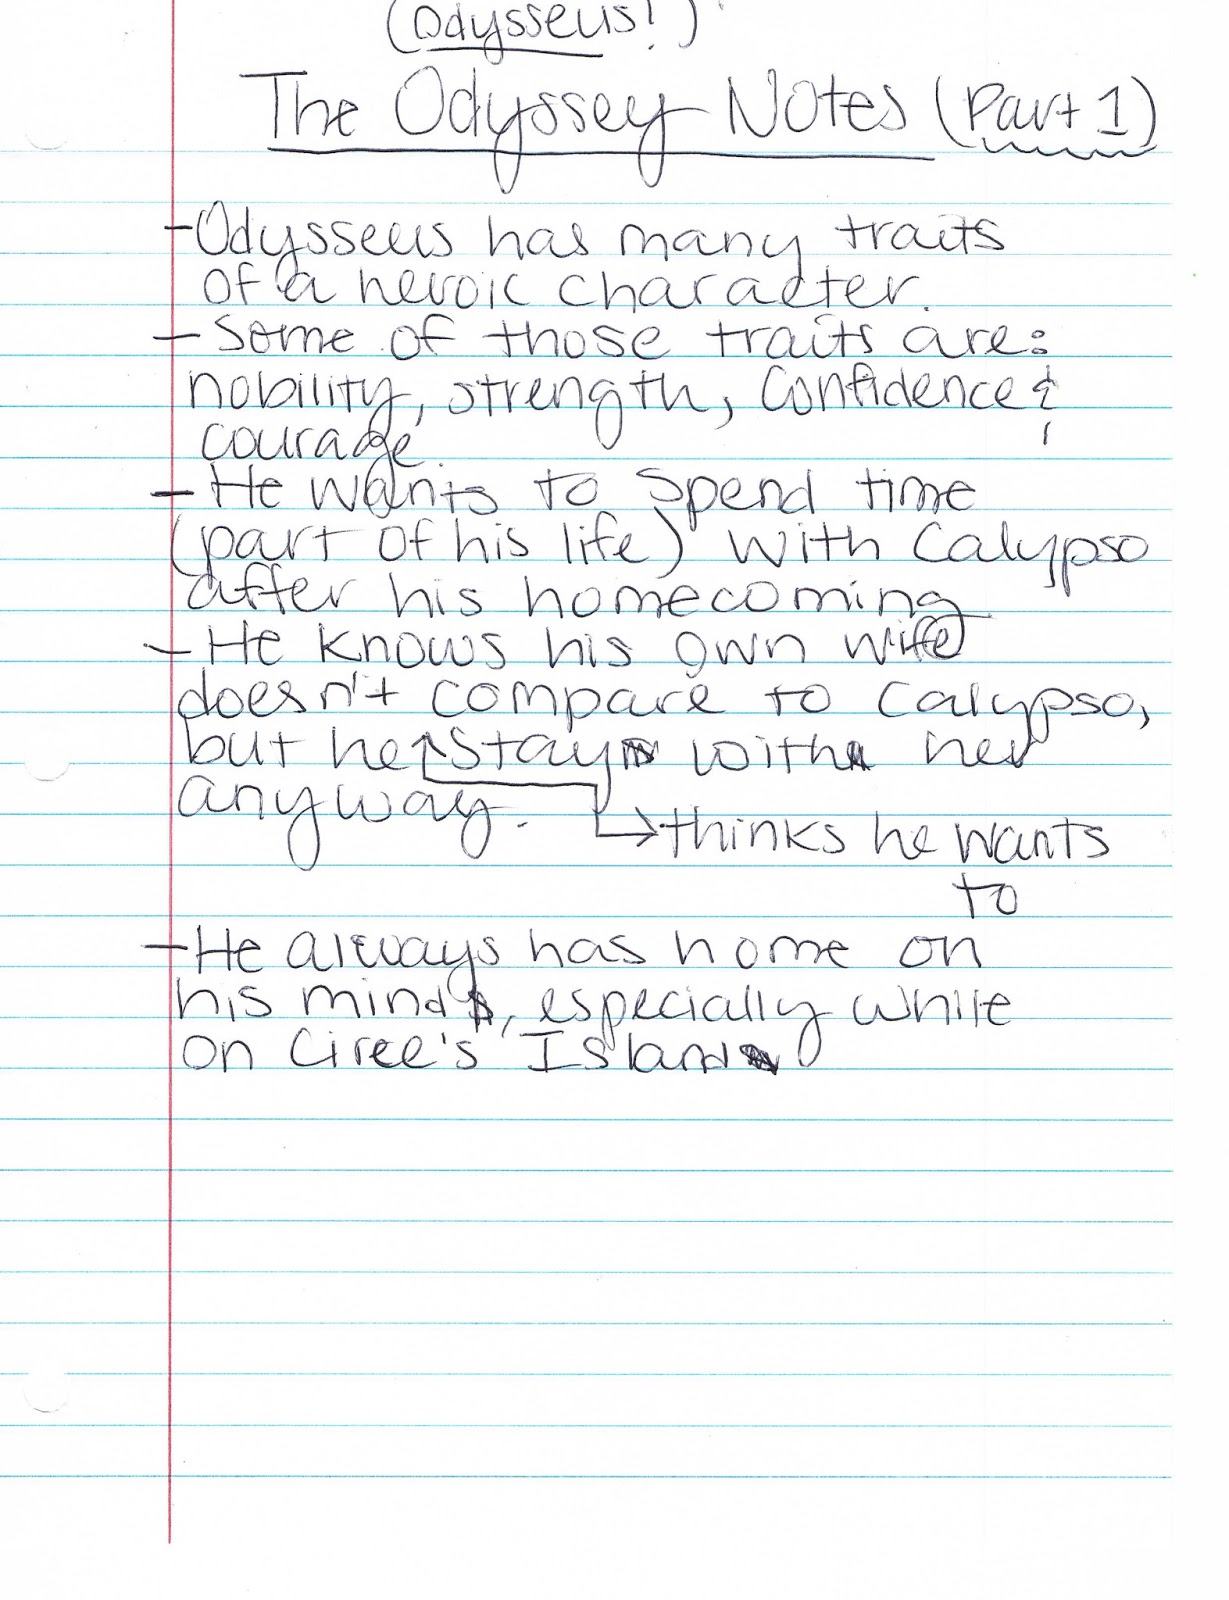 (Odysseus!)
The Odyssey Notes (Part 1)
- Odysseus has many traits
of a heroic character.
- Some of those traits are:
nobility, strength, confidence &
courage.
- He wants to spend time
(part of his life) with Calypso
after his homecoming
- He knows his own wife
doesn't compare to Calypso,
but he stay with her
anyway.
→ thinks he wants
to
- He always has home on
his mind, especially while
on Ciree's Island